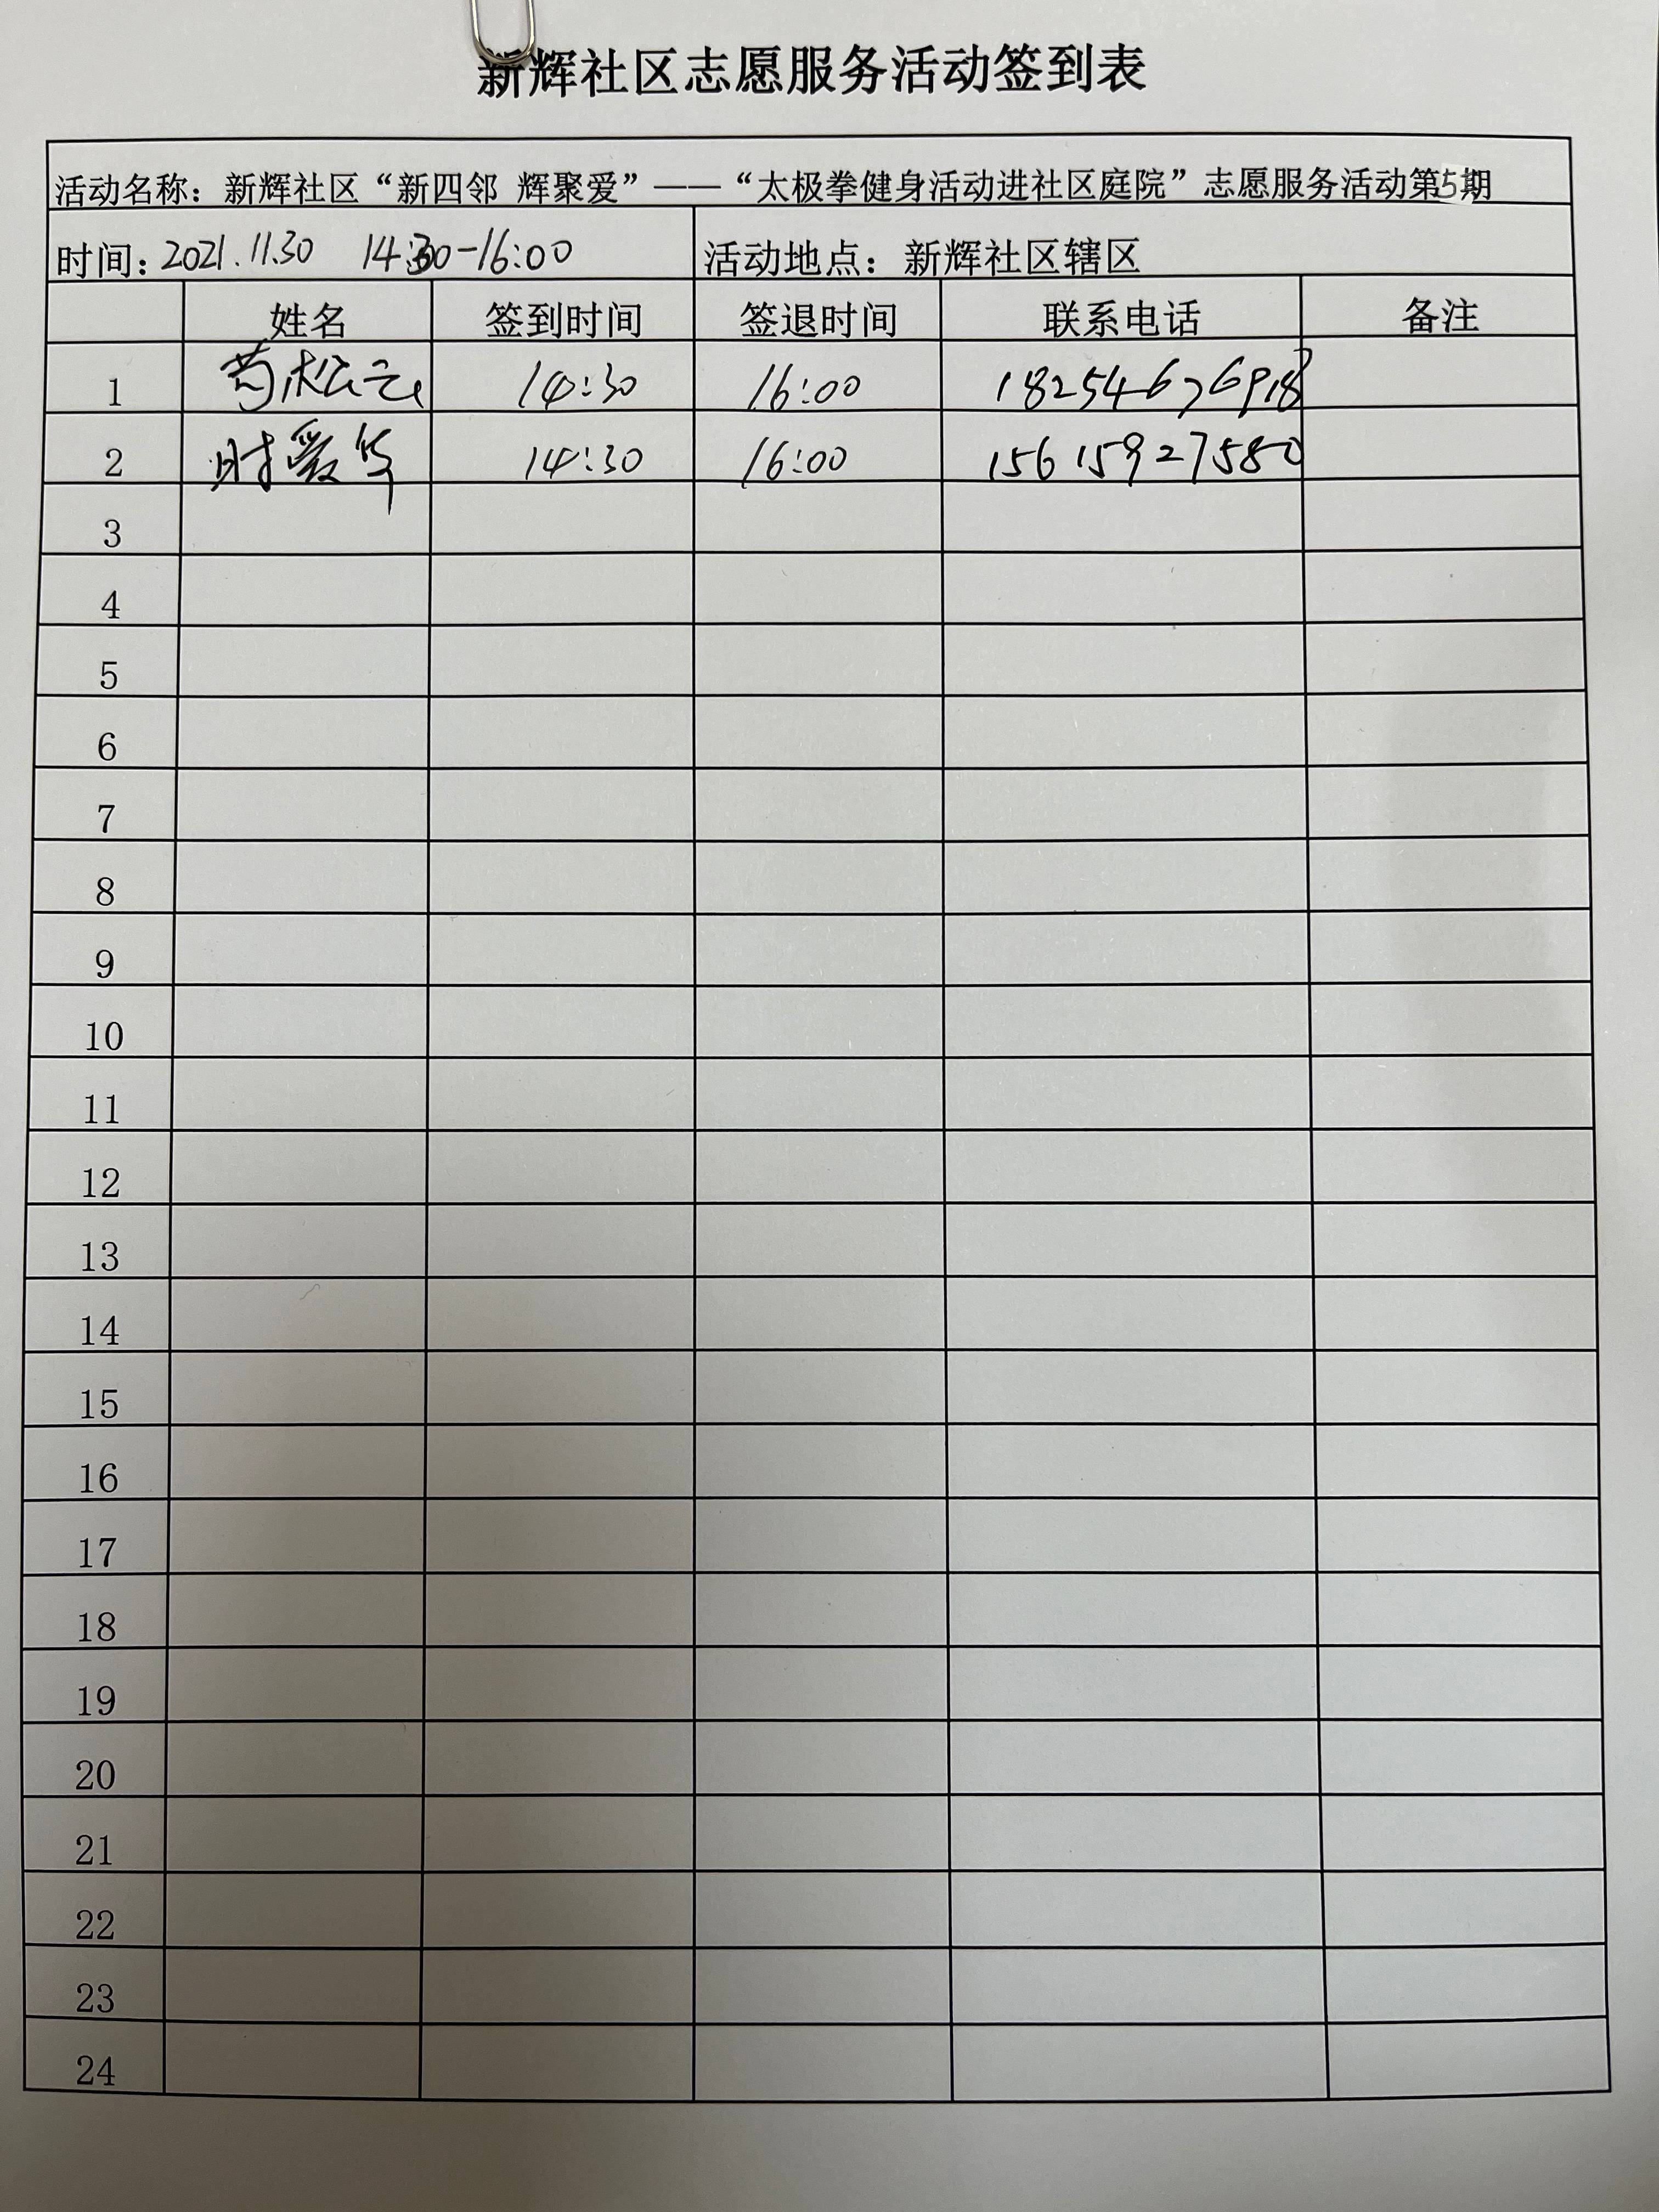 新辉社区志愿服务活动签到表
活动名称：新辉社区“新四邻 辉聚爱”——“太极拳健身活动进社区庭院”志愿服务活动第5期
时间：2021.11.30 14:30-16:00 活动地点：新辉社区辖区
姓名 签到时间 签退时间 联系电话 备注
1 苟松云 14:30 16:00 18254676918
2 时爱华 14:30 16:00 15615927580
3
4
5
6
7
8
9
10
11
12
13
14
15
16
17
18
19
20
21
22
23
24